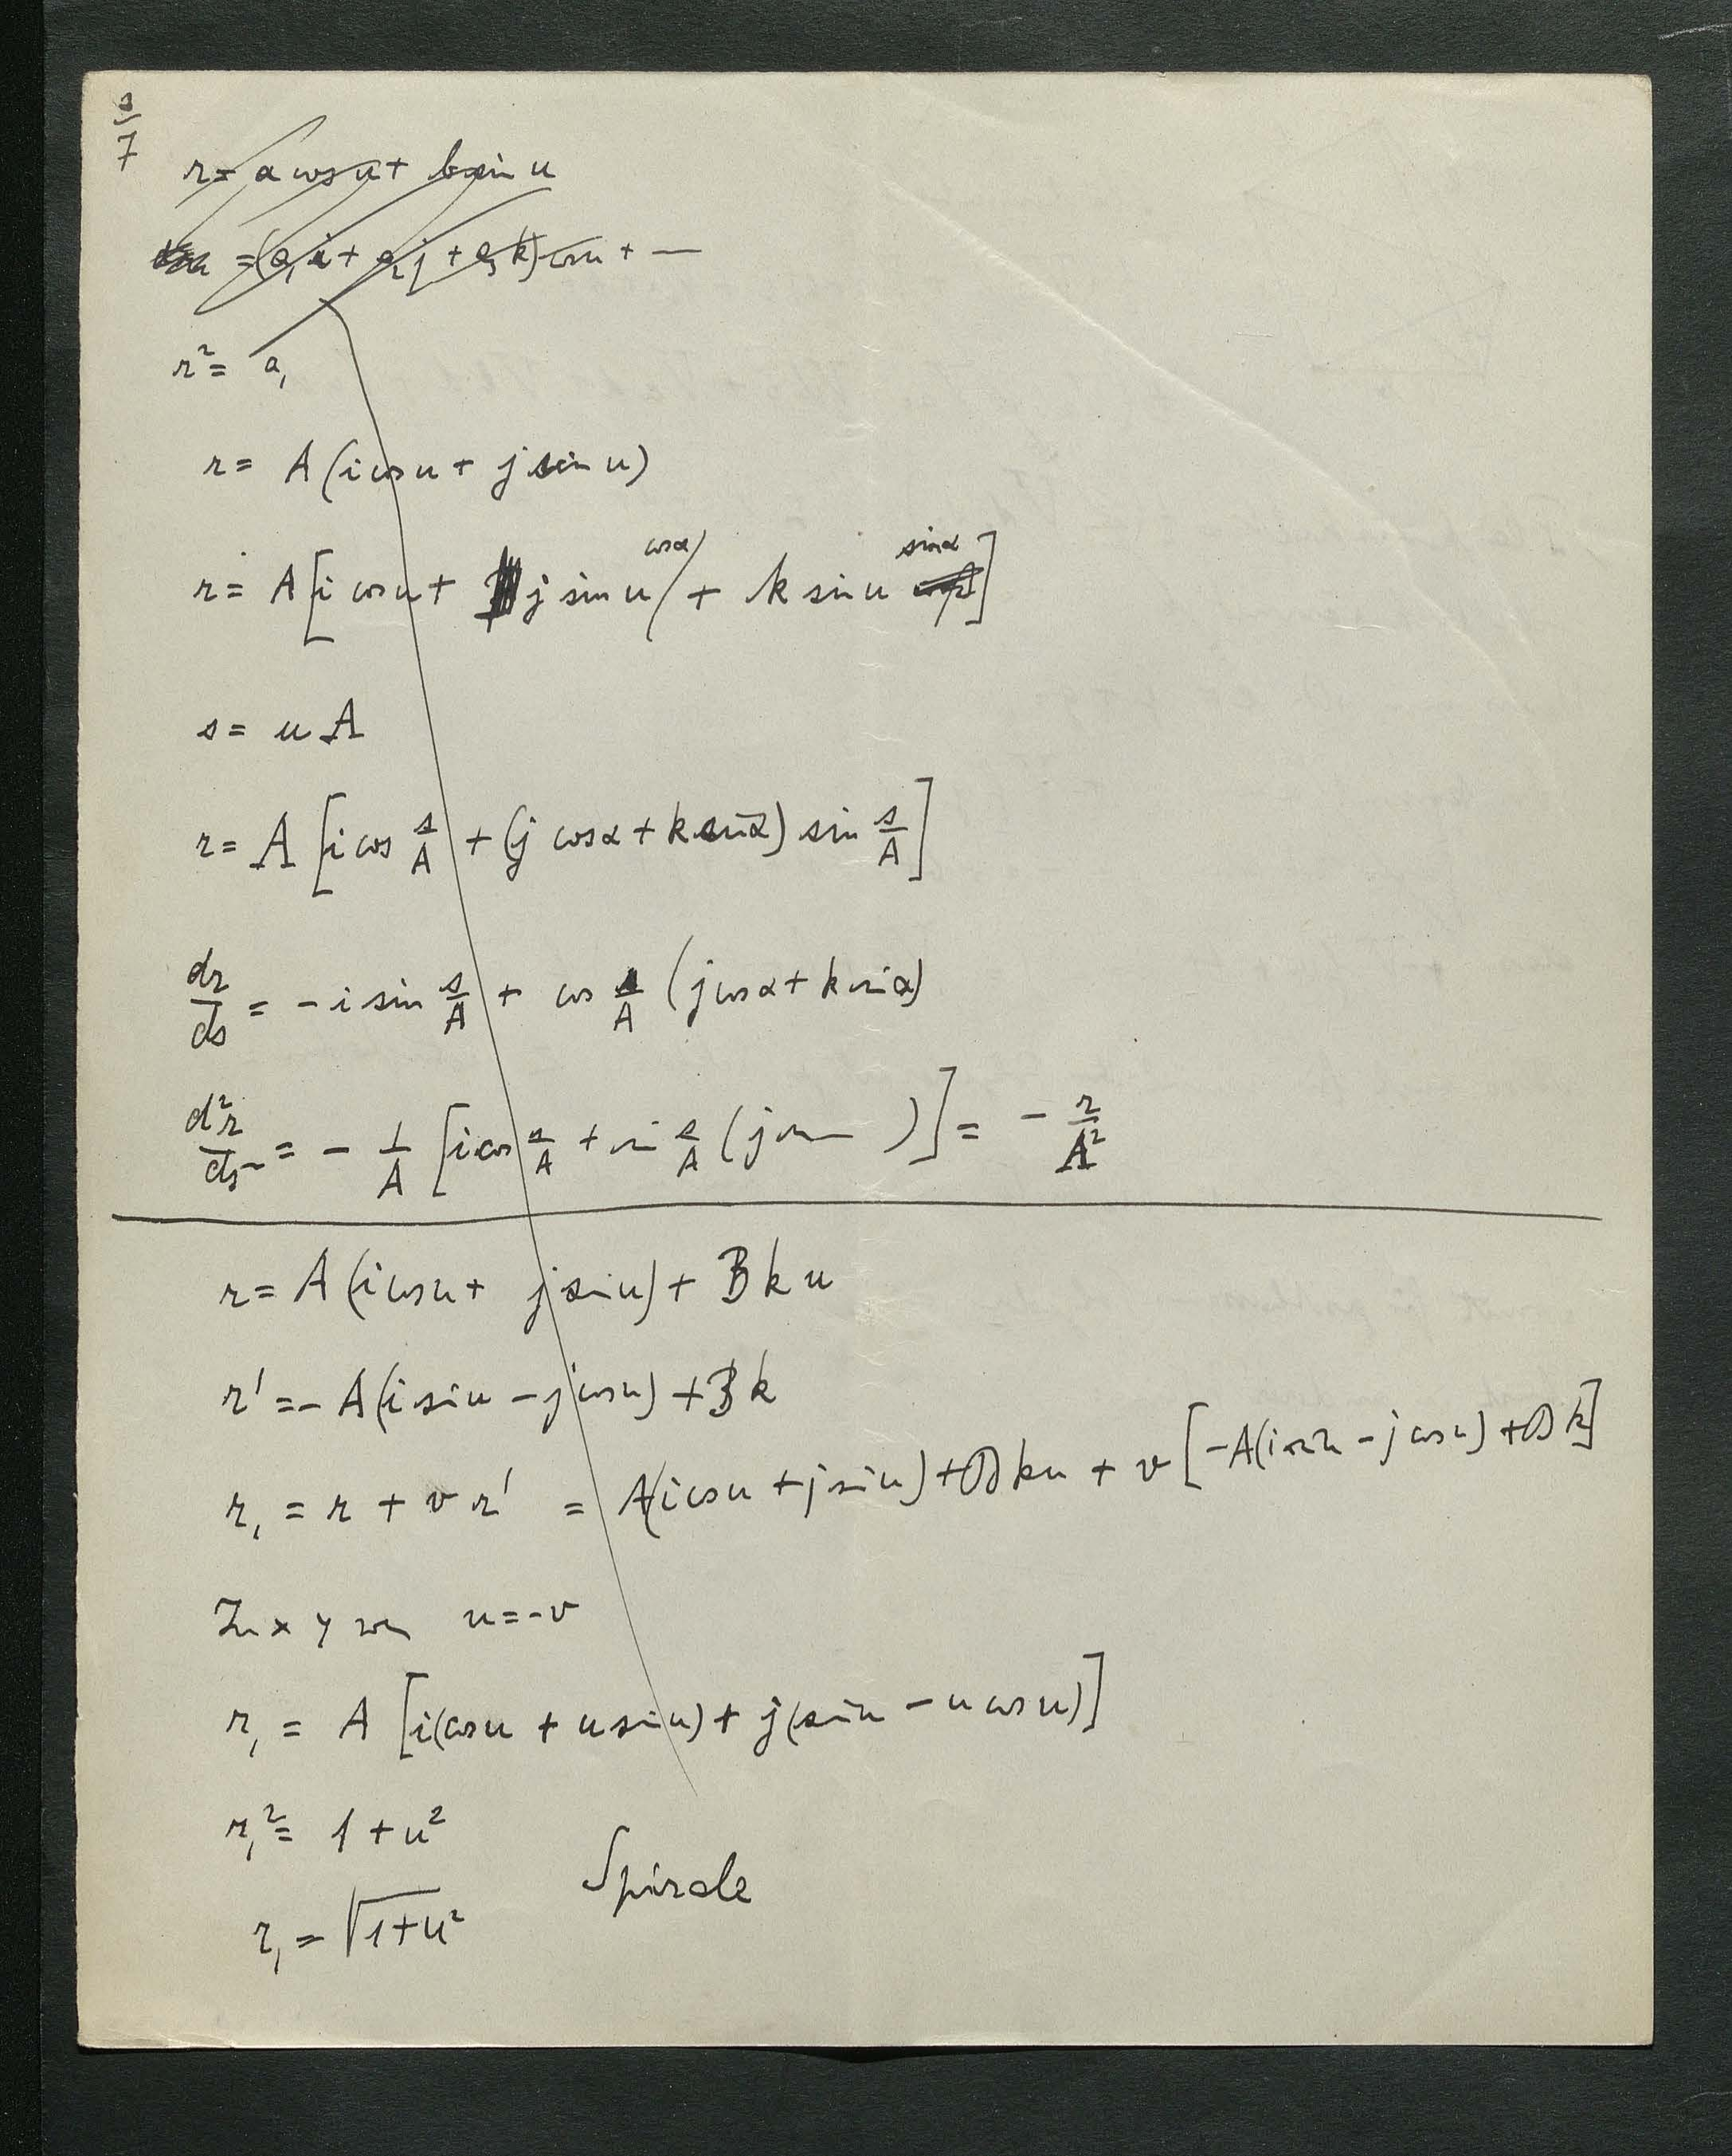 r = a cos u + b sin u
= (a₁i + a₂j + a₃k) cos u + —
r² = a₁
r = A(i cos u + j sin u)
r = A[i cos u + j sin u cos α + k sin u sin α]
s = u A
r = A [i cos s/A + (j cos α + k sin α) sin s/A]
dr/ds = - i sin s/A + cos s/A (j cos α + k sin α)
d²r/ds² = - 1/A [i cos s/A + sin s/A (j cos )] = - r/A²
r = A (i cos u + j sin u) + B k u
r' = - A(i sin u - j cos u) + B k
r₁ = r + v r' = A(i cos u + j sin u) + B k u + v [-A(i sin u - j cos u) + B k]
In x y u = -v
r₁ = A [i(cos u + u sin u) + j(sin u - u cos u)]
r₁² = 1 + u²
Spirale
r₁ = √1+u²